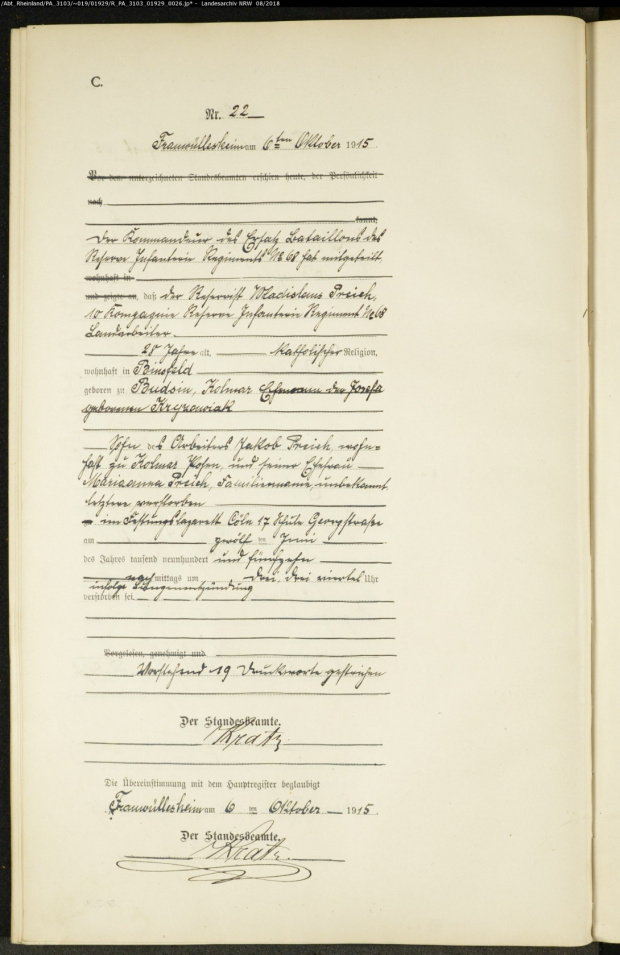 /Abt_Rheinland/PA_3103/~019/01929/R_PA_3103_01929_0026.jp* - Landesarchiv NRW 08/2018
C.
Nr. 22
Frauwüllesheim am 6ten Oktober 1915.
Vor dem unterzeichneten Standesbeamten erschien heute, der Persönlichkeit
nach
kannt,
Der Kommandeur des Ersatz Bataillons des
Reserve Infanterie Regiments No 68 hat mitgeteilt,
wohnhaft in
und zeigte an, daß der Reservist Wladislaus Preich,
10 Kompagnie Reserve Infanterie Regiment No 68
Landarbeiter
28 Jahre alt, katholischer Religion,
wohnhaft in Binsfeld
geboren zu Budsin, Kolmar Ehemann der Josefa
geborenen
Sohn des Arbeiters Jakob Preich, wohn=
haft zu Kolmar Posen, und seiner Ehefrau
Marianna Preich, Familienname unbekannt
letztere verstorben
im Festungslazarett Cöln 17 Schule Georgstraße
am zwölf ten Juni
des Jahres tausend neunhundert und fünfzehn
nachmittags um drei, drei viertel Uhr
infolge Lungenentzündung
verstorben sei.
Vorgelesen, genehmigt und
Vorstehend 19 Druckworte gestrichen
Der Standesbeamte.
Kratz
Die Übereinstimmung mit dem Hauptregister beglaubigt
Frauwüllesheim am 6 ten Oktober 1915
Der Standesbeamte.
Kratz